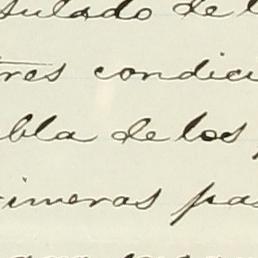 sulado de l
tres condici
bla de los
rimeras pas